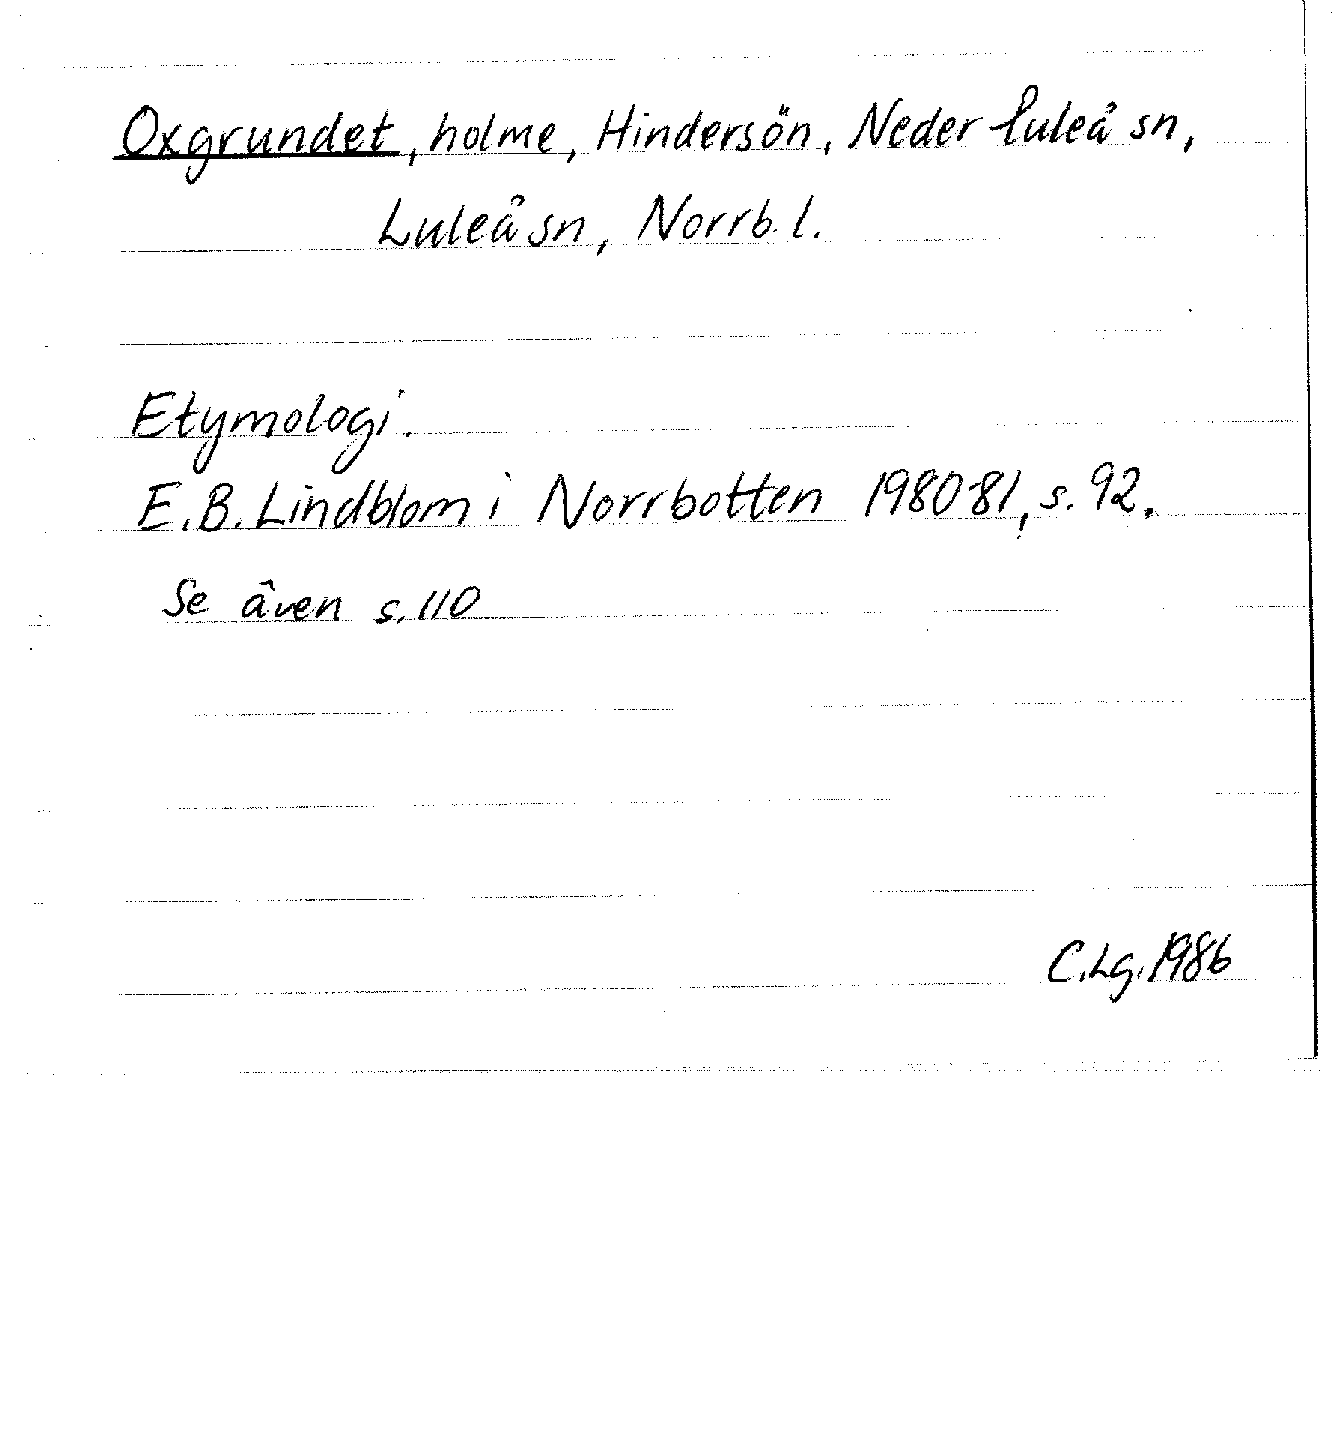 Oxgrundet, holme, Hindersön, Neder-Luleå sn,
Luleå sn, Norrb. l.
Etymologi.
E.B. Lindblom i Norrbotten 1980-81, s. 92.
Se även s. 110
C.Lg. 1986